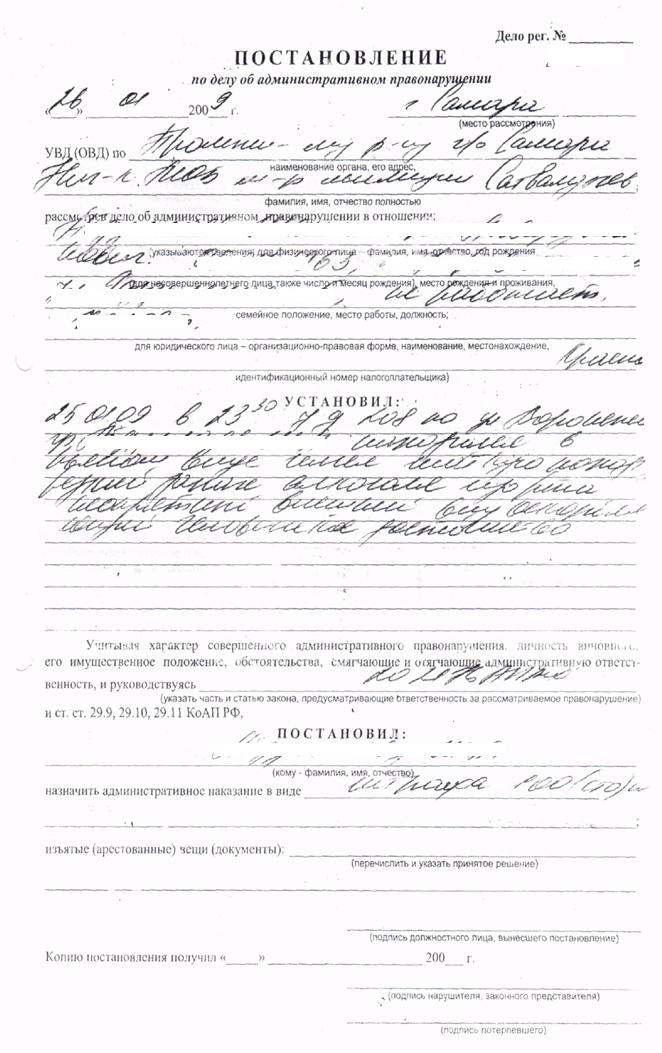 Дело рег. №
ПОСТАНОВЛЕНИЕ
по делу об административном правонарушении
«26» 01 2009 г. г Самара
(место рассмотрения)
УВД (ОВД) по Промышл-му р-ну г/о Самара
наименование органа, его адрес,
м-р милиции
фамилия, имя, отчество полностью
рассмотрев дело об административном правонарушении в отношении:
(указываются сведения: для физического лица – фамилия, имя, отчество, год рождения
(для несовершеннолетнего лица также число и месяц рождения), место рождения и проживания,
не работает,
семейное положение, место работы, должность;
для юридического лица – организационно-правовая форма, наименование, местонахождение,
идентификационный номер налогоплательщика)
УСТАНОВИЛ:
25 01 09 в 23 30 у д 208 по ул Вороне
гр. находился в
пьяном виде имел шаткую поход
резкий запах алкоголя изо рта
неопрятный внешний вид оскорбля
человеческое достоинство
Учитывая характер совершенного административного правонарушения, личность виновного,
его имущественное положение, обстоятельства, смягчающие и отягчающие административную ответст-
венность, и руководствуясь 20 21 КоАП РФ
(указать часть и статью закона, предусматривающие ответственность за рассматриваемое правонарушение)
и ст. ст. 29.9, 29.10, 29.11 КоАП РФ,
ПОСТАНОВИЛ:
(кому - фамилия, имя, отчество)
назначить административное наказание в виде штрафа 100 (сто)
;
изъятые (арестованные) вещи (документы):
(перечислить и указать принятое решение)
(подпись должностного лица, вынесшего постановление)
Копию постановления получил « » 200 г.
(подпись нарушителя, законного представителя)
(подпись потерпевшего)